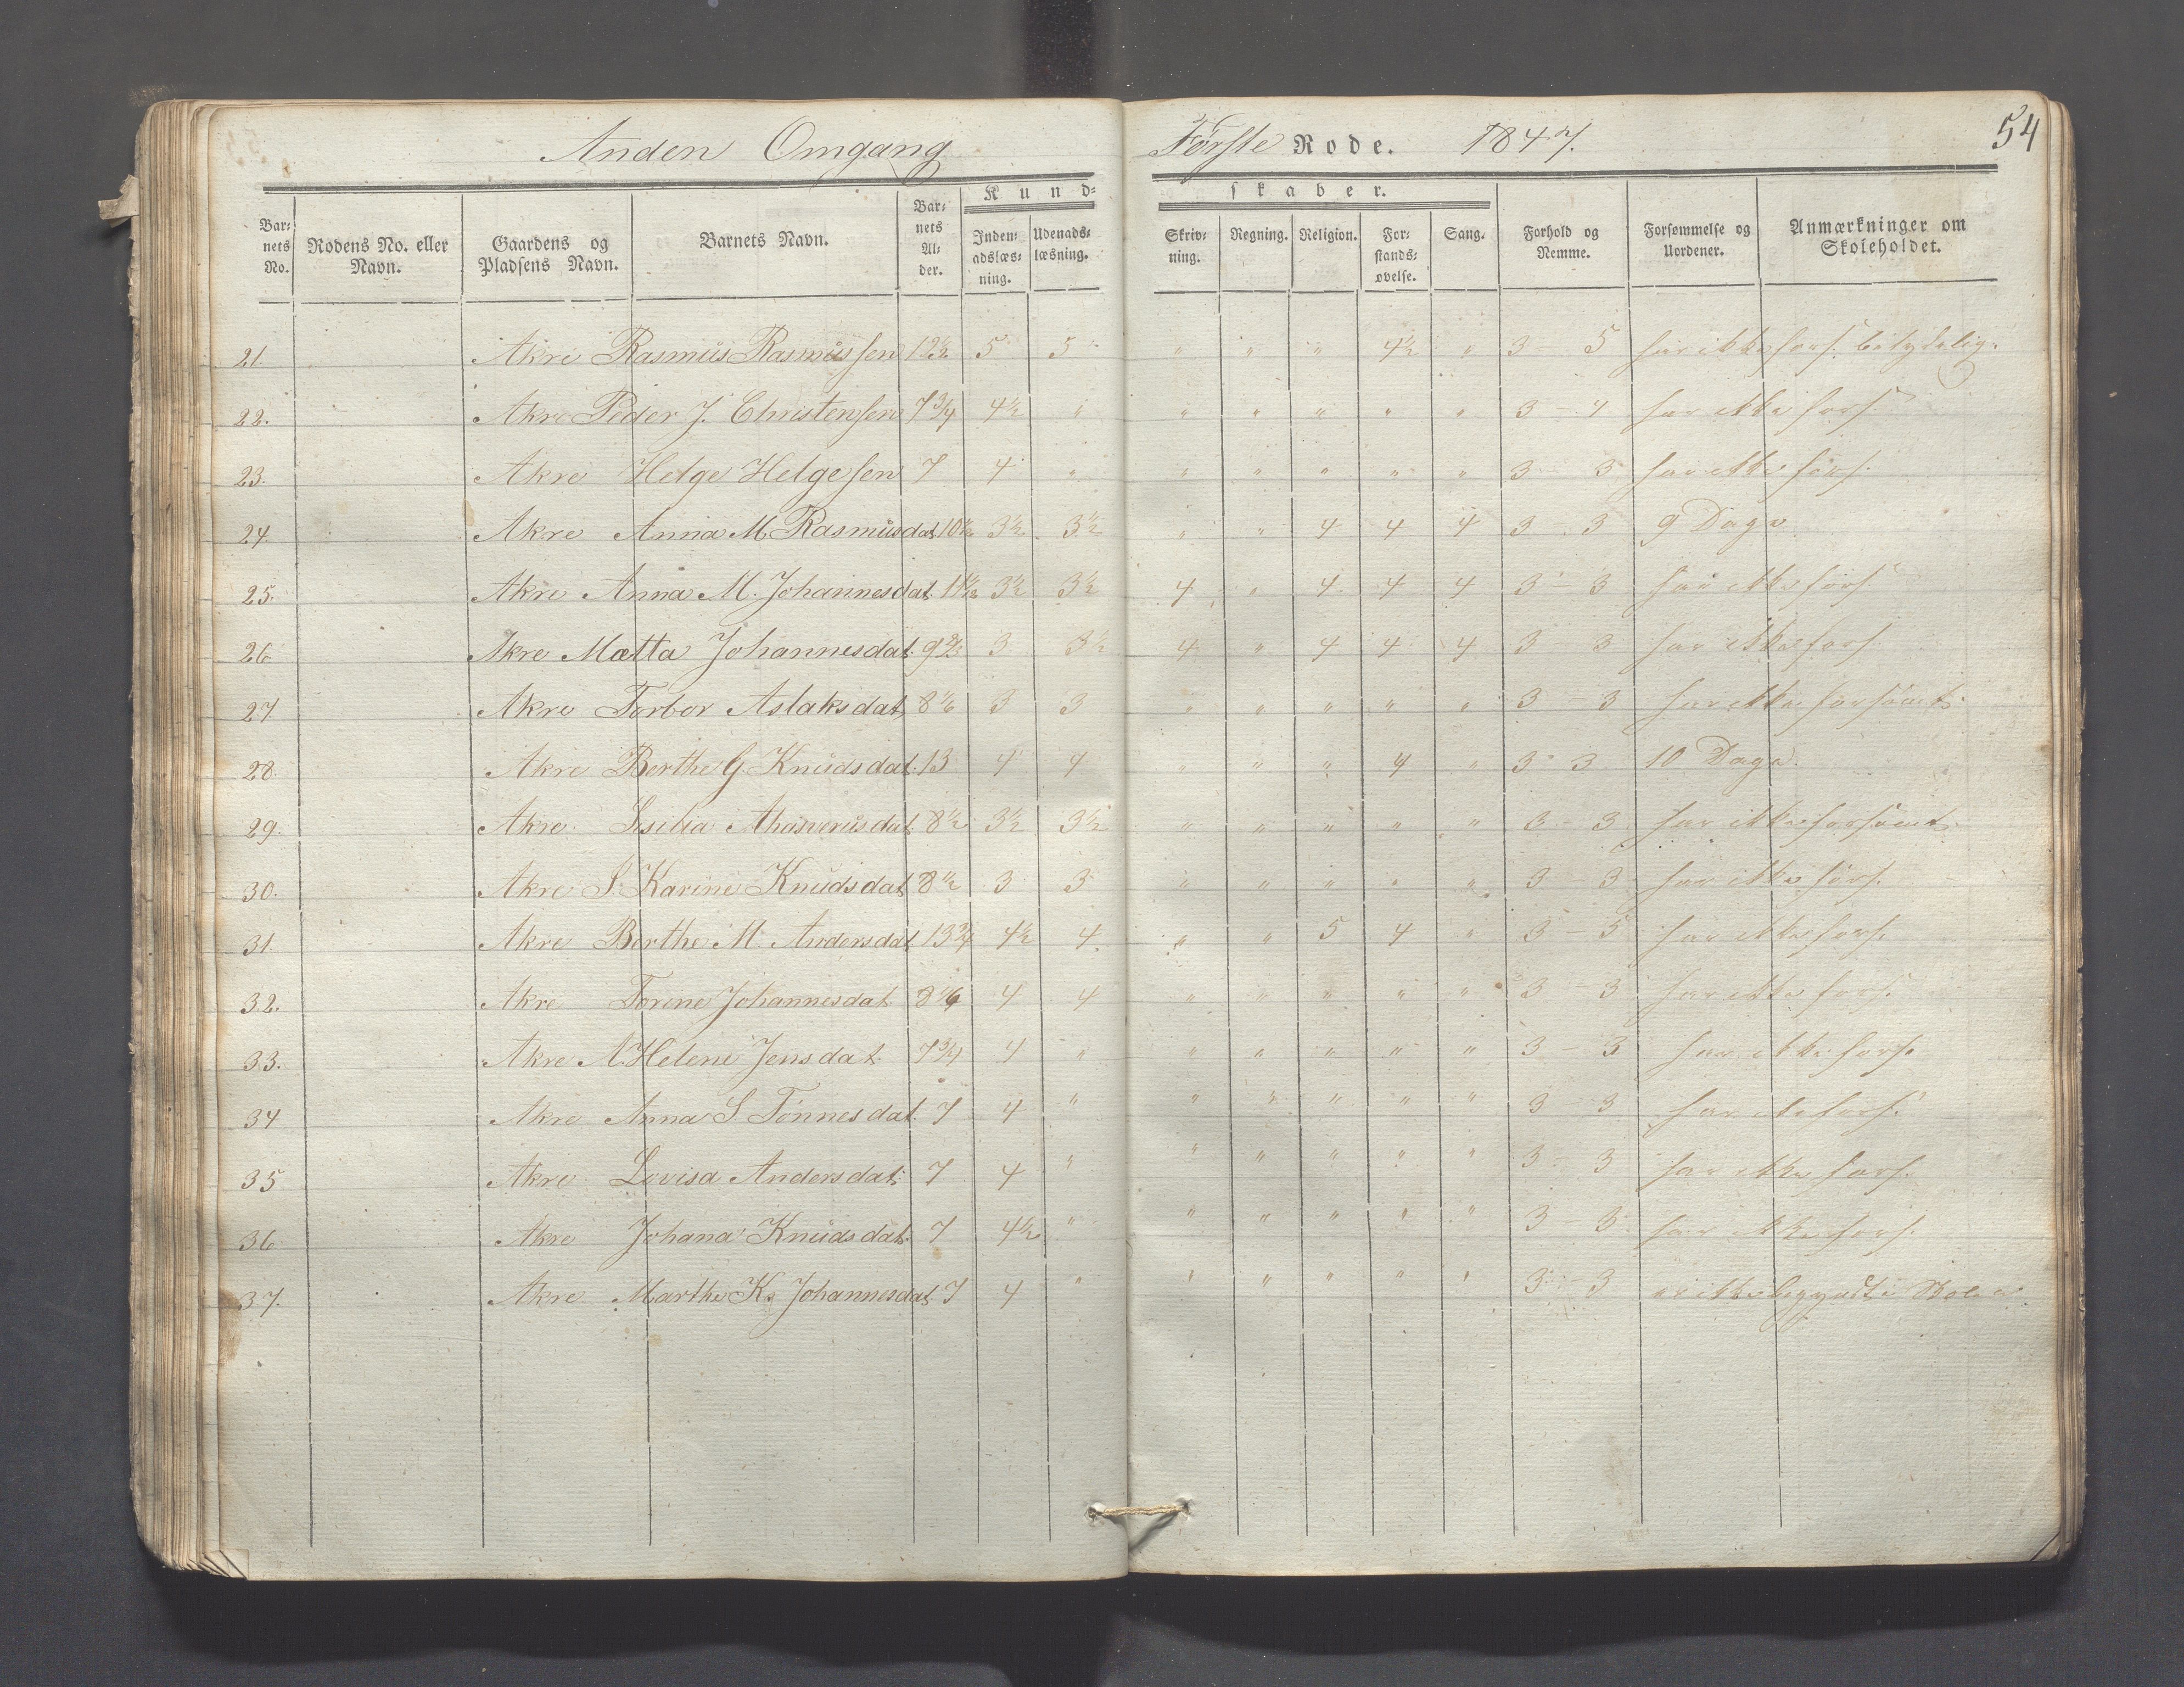 Anden Omgang Første Rode. 1847. 54
Kund- skaber.
Bar- nets No. Rodens No. eller Navn. Gaardens og Pladsens Navn. Barnets Navn. Bar- nets Al- der. Inden- adslæs- ning. Udenads- læsning. Skriv- ning. Regning. Religion. For- stands- øvelse. Sang. Forhold og Nemme. Forsømmelse og Uordener. Anmærkninger om Skoleholdet.
21. Akre Rasmus Rasmussen 12½ 5 5 " " " 4½ " 3 5 har ikke fors. betydelig.
22. Akre Peder J. Christensen 7¾ 4½ " " " " " " 3 - 4 har ikke fors.
23. Akre Helge Helgesen 7 4 " " " " " " 3 3 har ikke fors.
24. Akre Anna M. Rasmusdat. 10½ 3½ 3½ " " 4 4 4 3 3 9 Dage
25. Akre Anna M. Johannesdat. 11½ 3½ 3½ 4 " 4 4 4 3 - 3 har ikke fors.
26 Akre Mætta Johannesdat. 9⅔ 3 3½ 4 " 4 4 4 3 3 har ikke fors.
27 Akre Torbor Aslaksdat. 8⅙ 3 3 " " " " " 3 - 3 har ikke forsömt.
28. Akre Berthe G. Knudsdat. 13 4 4 " " " 4 " 3 3 10 Dage.
29. Akre Sisilia Ahasverusdat. 8½ 3½ 3½ " " " " " 3 - 3 har ikke forsömt.
30. Akre S. Karine Knudsdat. 8½ 3 3 " " " " " 3 - 3 har ikke fors.
31. Akre Berthe M. Andersdat. 13¾ 4½ 4 " " 5 4 " 3 - 5 har ikke fors.
32. Akre Torine Johannesdat. 8⅙ 4 4 " " " " " 3 - 3 har ikke fors.
33. Akre A Helene Jensdat. 7¾ 4 " " " " " " 3 - 3 har ikke fors.
34 Akre Anna S. Tönnesdat. 7 4 " " " " " " 3 - 3 har ikke fors.
35 Akre Lovisa Andersdat. 7 4 " " " " " " 3 - 3 har ikke fors.
36 Akre Johana Knudsdat. 7 4½ " " " " " " 3 - 3 har ikke fors.
37. Akre Marthe K. Johannesdat. 7 4 " " " " " " 3 - 3 er ikke begyndt i Skolen